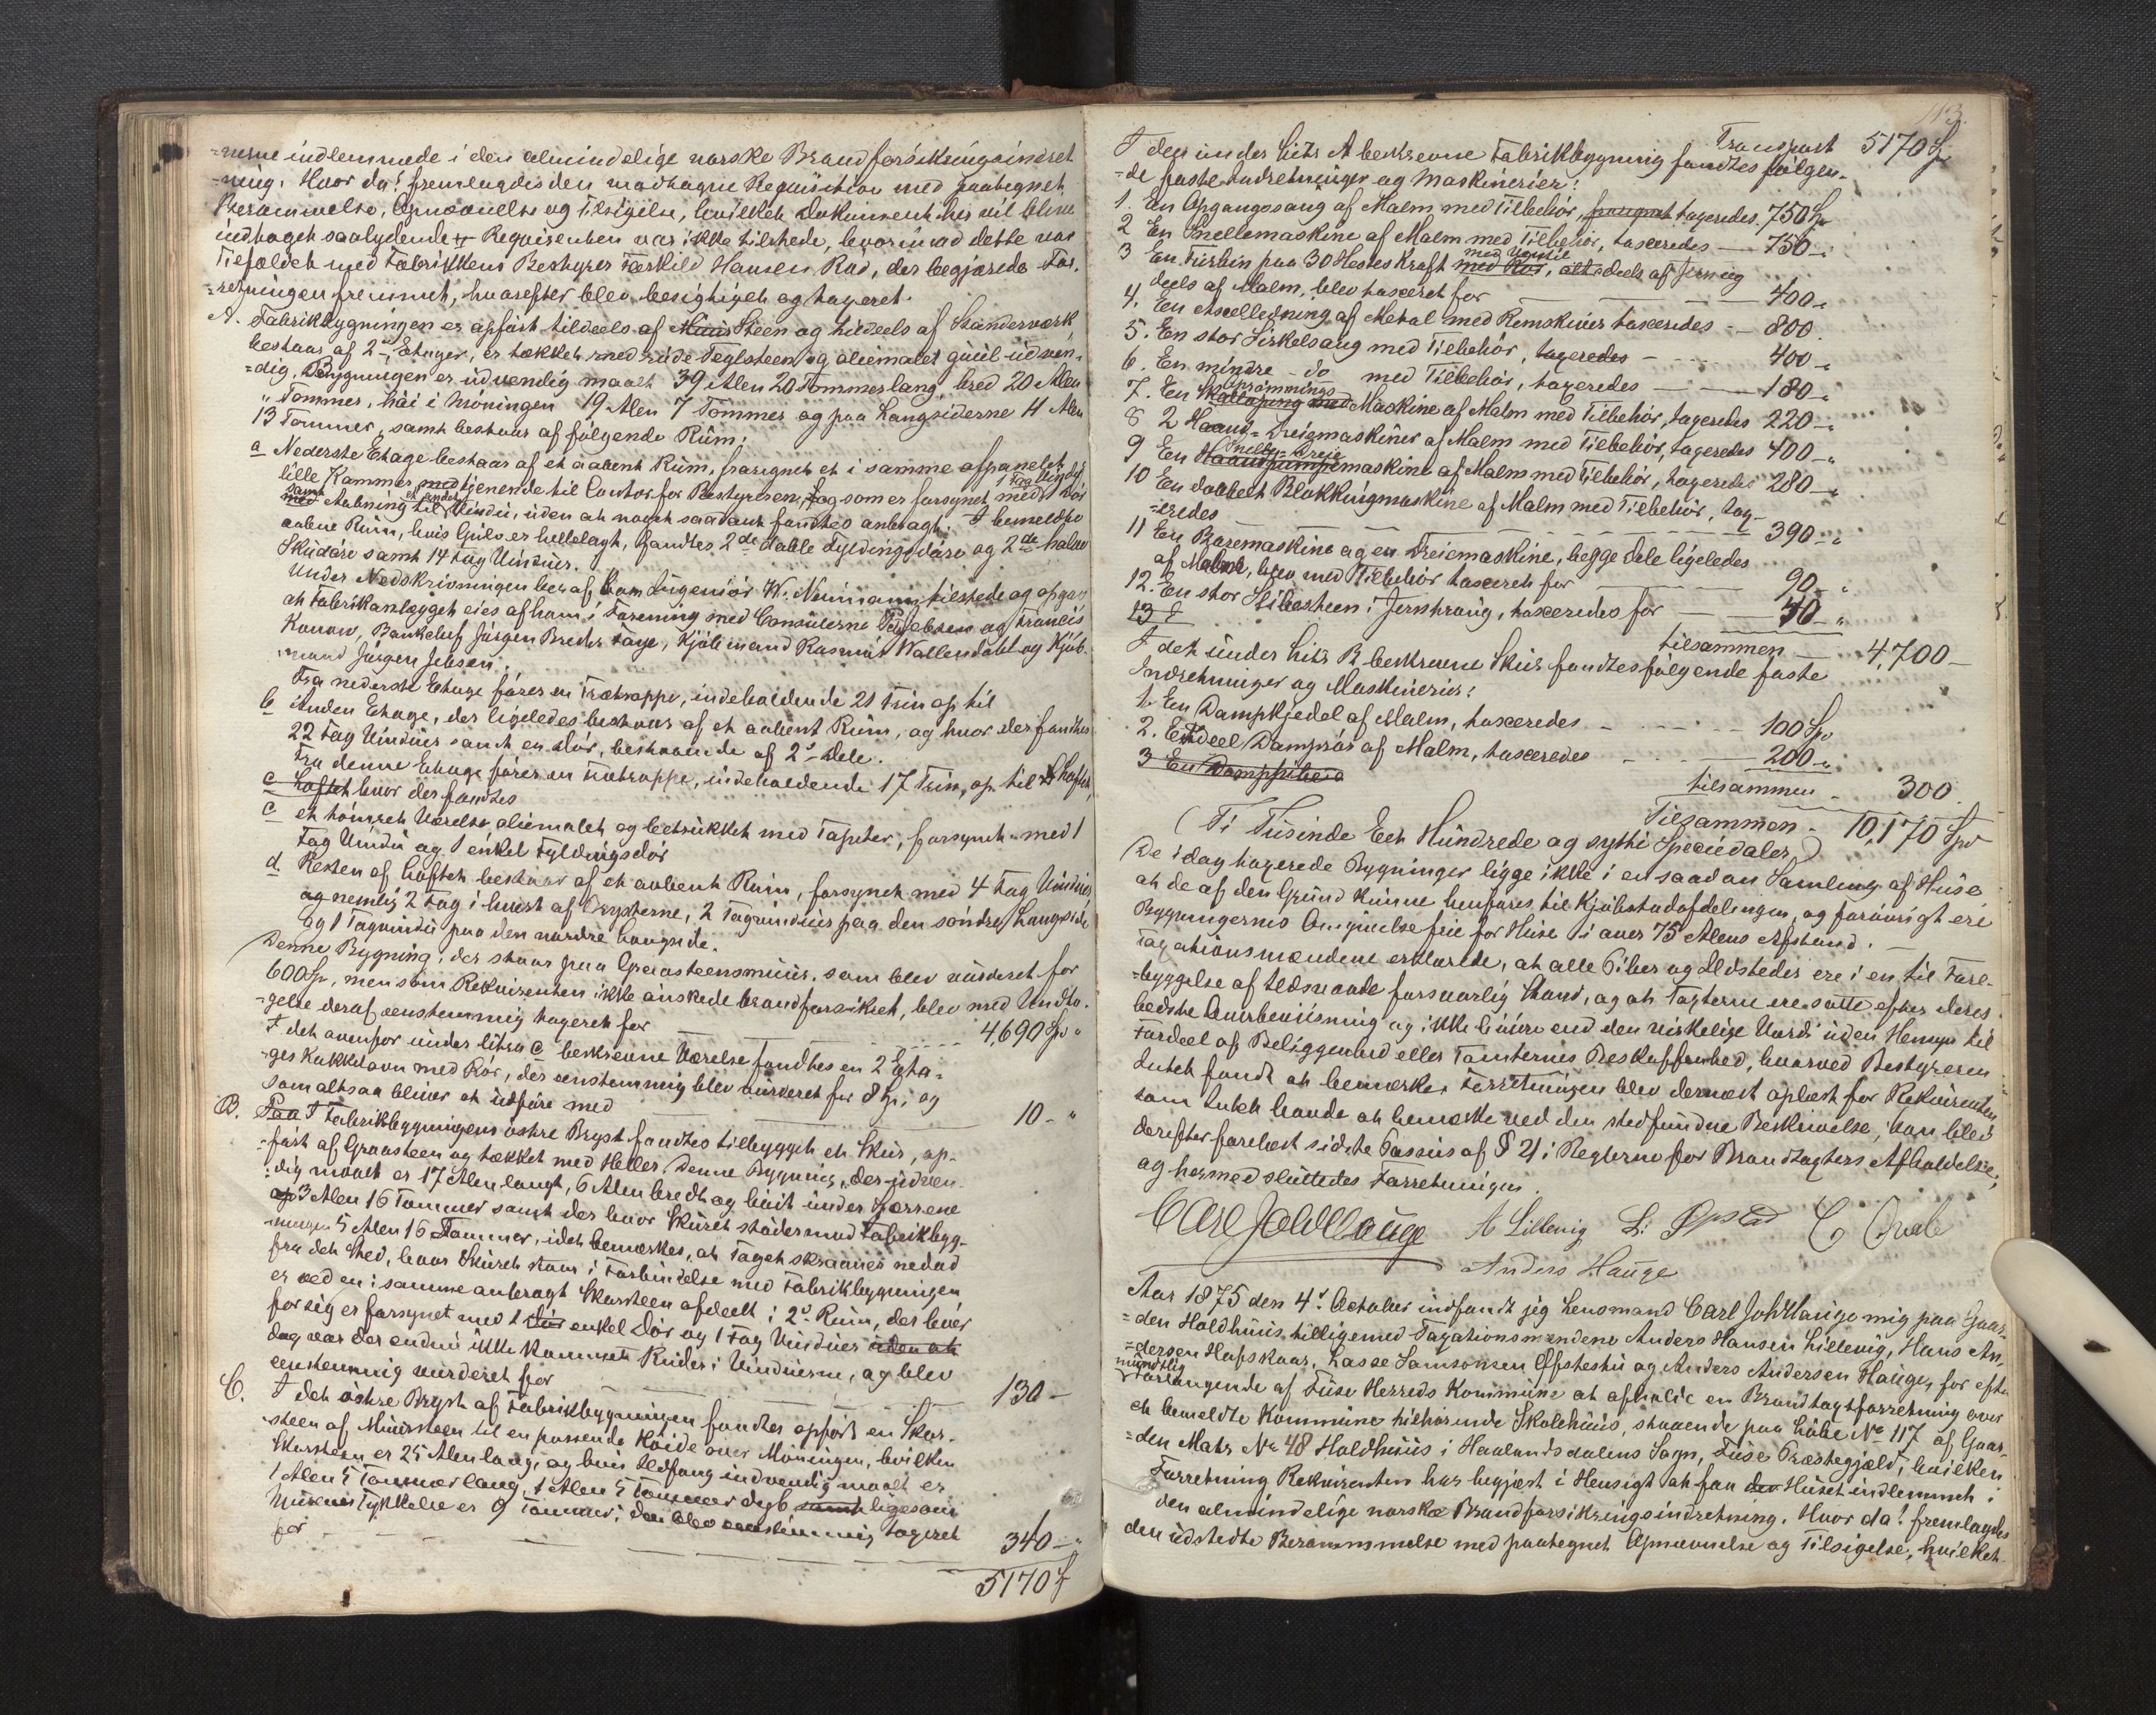 =nerne indlemmede i den almindelige norske Brandforsikringsindret
=ning. Hvor da! fremlagdes den modtagne Requisition med paategnet
Berammelse, Opnævnelse og Tilsigelse, hvilket Dokument her vil blive
indtaget saalydende # Requirenten var ikke tilstede, hvorimod dette var
Tilfældet med Fabrikkens Bestyrer Tærkild Hansen Rød, der begjærede For,
=retningen fremmet, hvorefter blev besigtiget og taxeret.
A. Fabrikbygningen er opført tildeels af Muur Steen og tildeels af Standerværk
bestaar af 2de Etager, er tækket med røde Teglsteen og oliemalet guul udven,
=dig. Bygningen er udvendig maalt 39 Alen 20 Tommer lang, bred 20 Alen
" Tommer, høi i Møningen 19 Alen 7 Tommer og paa Langsiderne 11 Alen
13 Tommer, samt bestaar af følgende Rum:
a Nederste Etage bestaar af et aabent Rum, fraregnet et i samme afpanelet
lille Kammer med tjenende til Contor for Bestyreren, og som er forsynet med 1 Fag Vindu 1 Dør
samt med Aabning til et andet Vindu, uden at noget saadant fandtes anbragt. I bemeldte
aabne Rum, hvis Gulv er hellelagt, fandtes 2de dobble Fyldingsdøre og 2de halve
Skuddøre samt 14 Fag Vinduer.
Under Nedskrivningen heraf kom Ingeniør W. Neumann tilstede og opgav
at Fabrikanlægget eies af ham i Forening med Consulerne og Francis
Konow, Bankchef Jørgen Breder Faye, Kjøbmand Rasmus Wallendahl og Kjøb-
mand Jørgen Jebsen.
Fra nederste Etage fører en Trætrappe, indeholdende 21 Trin op til
b Anden Etage, der ligeledes bestaar af et aabent Rum, og hvor der fandtes
22 Fag Vinduer samt en Dør, bestaaende af 2de Dele.
Fra denne Etage fører en Trætrappe, indeholdende 17 Trin, op til Loftet,
c Loftet hvor der fandtes
c et tømret Værelse, oliemalet og betrukket med Tapeter, forsynet med 1
Fag Vindu og 1 enkel Fyldingsdør
d. Resten af Loftet bestaar af et aabent Rum, forsynet med 4 Fag Vinduer
og nemlig 2 Fag i hvert af Brysterne, 2 Tagvinduer paa den søndre Langside
og 1 Tagvindu paa den nordre Langside.
Denne Bygning, der staar paa Graasteensmuur, som blev vurderet for
600 Sp, men som Rekvirenten ikke ønskede brandforsikret, blev med Undta-
=gelse deraf eenstemmig taxeret for - - - - - 4,690 Spd "
I det ovenfor under litra c beskrevne Værelse fandtes en 2 Eta-
=ges Kakkelovn med Rør, der eenstemmig blev vurderet for 8 Sp, og
som altsaa bliver at udføre med 10 - "
B. Paa I Fabrikbygningens østre Bryst fandtes tilbygget et Skur, op-
=ført af Graasteen og tækket med Heller. Denne Bygning, der udven-
=dig maalt er 17 Alen langt, 6 Alen bredt og høit under Tørrene
og 3 Alen 16 Tommer samt der hvor Skuret støder mod Fabrikbyg-
ningen 5 Alen 16 Tommer, idet bemærkes, at Taget skraaner nedad
fra det Sted, hvor Skuret staar i Forbindelse med Fabrikbygningen
er ved en i samme anbragt Skorsteen afdeelt i 2de Rum, der hver
for sig er forsynet med 1 Dør enkel Dør og 1 Fag Vinduer uden at
dog var der endnu ikke kommet Ruder i Vinduerne, og blev
eenstemmig vurderet for - - - 130 -
C. I det østre Bryst af Fabrikbygningen fandtes opført en Skor-
=steen af Muursteen til en passende Høide over Møningen, hvilken
Skorsteen er 25 Alen lang, og hvis Ildfang indvendig maalt er
1 Alen 5 Tommer lang, 1 Alen 5 Tommer dyb samt ligesom
Murens Tykkelse er 9 Tommer; den blev eenstemmig taxeret
for - - - 340 - "
5170 Sp
113.
Transport 5170 Sp
I den under Litr A beskrevne Fabrikbygning fandtes følgen-
=de faste Indretninger og Maskinerier:
1. En Opgangssaug af Malm med Tilbehør, taxeredes 750 Sp
2 En Snellemaskine af Malm med Tilbehør, taxeredes - 750 - "
3 En Turbin paa 30 Hestes Kraft med Rør, med Ventil deels af Jern og
deels af Malm, blev taxeret for - - 400 - "
4. En Axelledning af Metal med Remskiver taxeredes - - 800.
5. En stor Sirkelsaug med Tilbehør, taxeredes - - - 400 - "
6. En mindre - do med Tilbehør, taxeredes - - 180 - "
7. En Maskine af Malm med Tilbehør, taxeredes 220 - "
8 2 Haand-Dreiemaskiner af Malm med Tilbehør, taxeredes 400 - "
9 En Snelle-Dreie Haandpumpemaskine af Malm med Tilbehør, taxeredes 280 - "
10 En dobbelt Blokkingmaskine af Malm med Tilbehør, tax-
=eredes - - - 390 - "
11 En Boremaskine og en Dreiemaskine, begge dele ligeledes
af Malm, blev med Tilbehør taxeret for - 90 - "
12. En stor Slibesteen i Jerntraug, taxeredes for - 40 - "
13 E
tilsammen - 4,700 -
I det under Litr B beskrevne Skur fandtes følgende faste
Indretninger og Maskinerier:
1. En Dampkjedel af Malm, taxeredes - - - - 100 Spd
2. Endeel Damprør af Malm, taxeredes - - - 200 - "
3 En Damp
tilsammen - 300.
Tilsammen - 10,170 Spd
(Ti Tusinde Eet Hundrede og sytti Speciedaler)
De idag taxerede Bygninger ligge ikke i en saadan Samling af Huse
at de af den Grund kunne henføres til Kjøbstadafdelingen, og forøvrigt ere
Bygningernes Omgivelse frie for Huse i over 75 Alens Afstand. -
Taxationsmændene erklærede, at alle Piber og Ildsteder ere i en til Fore-
=byggelse af Ildsvaade forsvarlig Stand, og at Taxterne ere satte efter deres
bedste Overbeviisning og ikke høiere end den virkelige Værdi uden Hensyn til
Fordeel af Beliggenhed eller Tomternes Beskaffenhed, hvorved Bestyreren
Intet fandt at bemærke. Forretningen blev dernæst oplæst for Rekvirenten
som Intet havde at bemærke ved den stedfundne Beskrivelse; han blev
derefter forelæst sidste Passus af § 21 i Reglerne for Brandtaxters Afholdelse;
og hermed sluttedes Forretningen.
Carl Joh Hauge A Lillevig L: Øpstad
Anders Hauge
Aar 1875 den 4de October indfandt jeg Lensmand Carl Joh Hauge mig paa Gaar-
=den Holdhuus tilligemed Taxationsmændene Anders Hansen Lillevig, Hans An,
=dersen Hafskaar, Lasse Samsonsen Øfstethu og Anders Andersen Hauge, for efter
mundtlig Forlangende af Fuse Herreds Kommune at afholde en Brandtaxtforretning over
et bemeldte Kommune tilhørende Skolehuus, staaende paa Løbe No 117 af Gaar-
=den Matr No 48 Holdhuus i Haalandsdalens Sogn, Fuse Præstegjæld, hvilken
Forretning Rekvirenten har begjært i Hensigt at faa den Huset indlemmet i
den almindelige norske Brandforsikringsindretning. Hvor da! fremlagdes
den udstedte Berammelse med paategnet Opnævnelse og Tilsigelse, hvilket